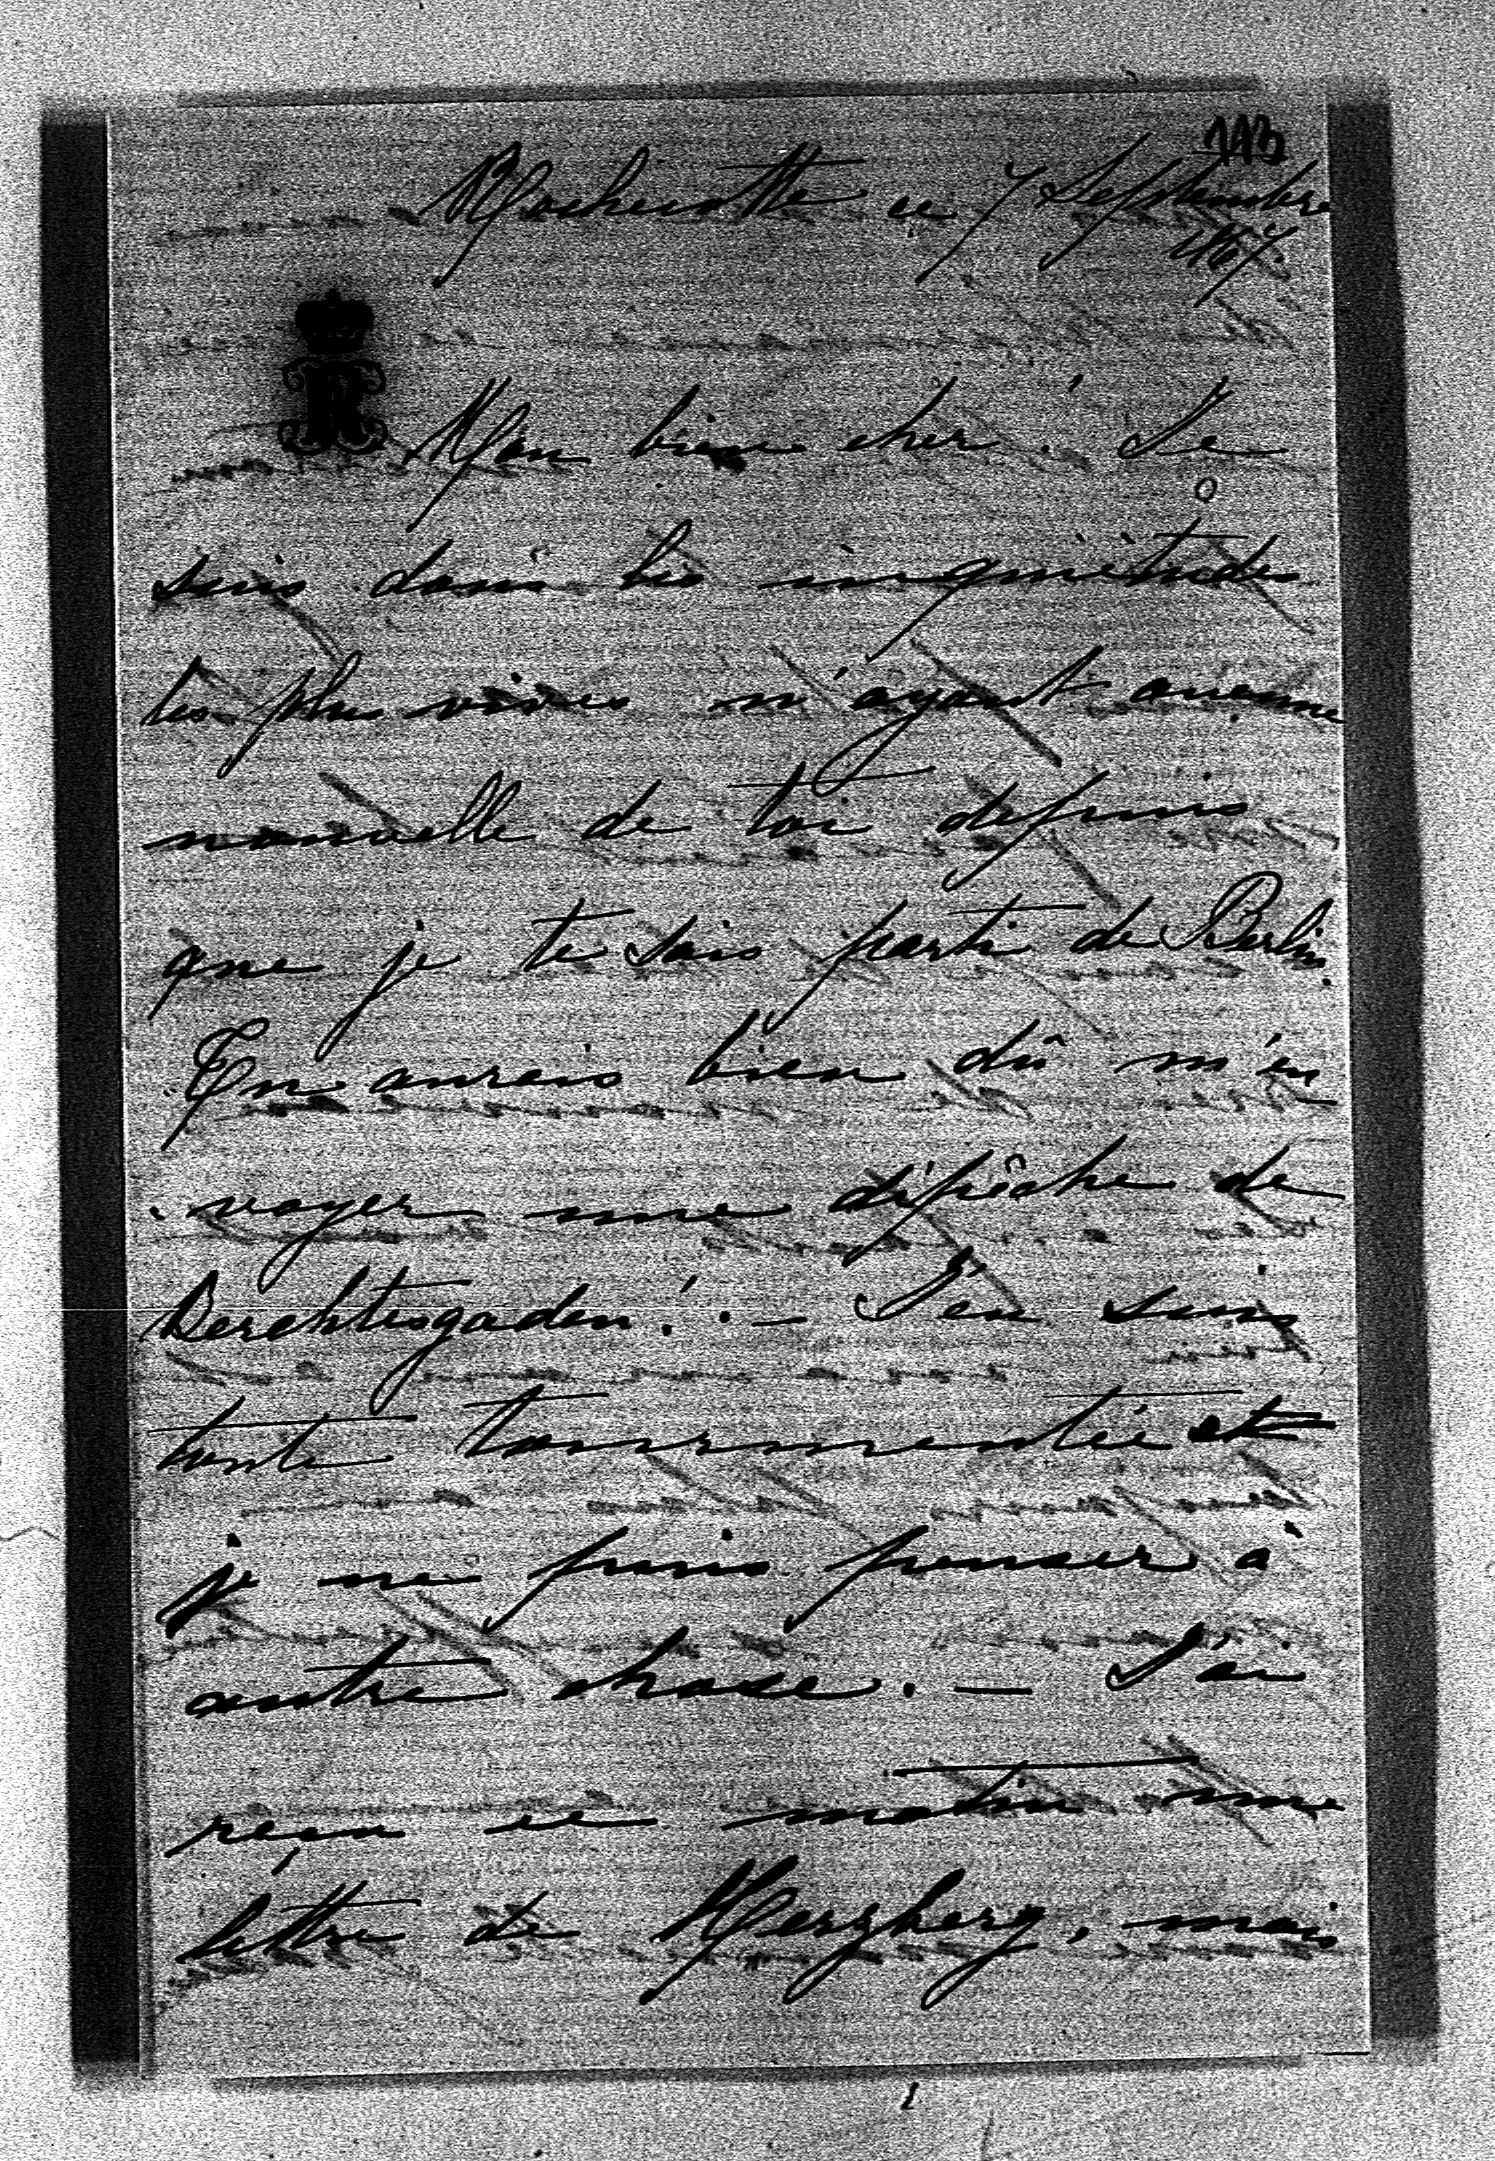 113
Rochecotte ce 7 Septembre
1867.
Mon bien cher! Je
suis dans les inquiétudes
les plus vives n'ayant aucune
nouvelle de toi depuis
que je te sais parti de Berlin.
Tu aurais bien dû m'en
voyer une dépêche de
Berchtesgaden! . — J'en suis
toute tourmentée et
je ne puis penser à
autre chose. — J'ai
reçu ce matin une
lettre de Herzberg, mais